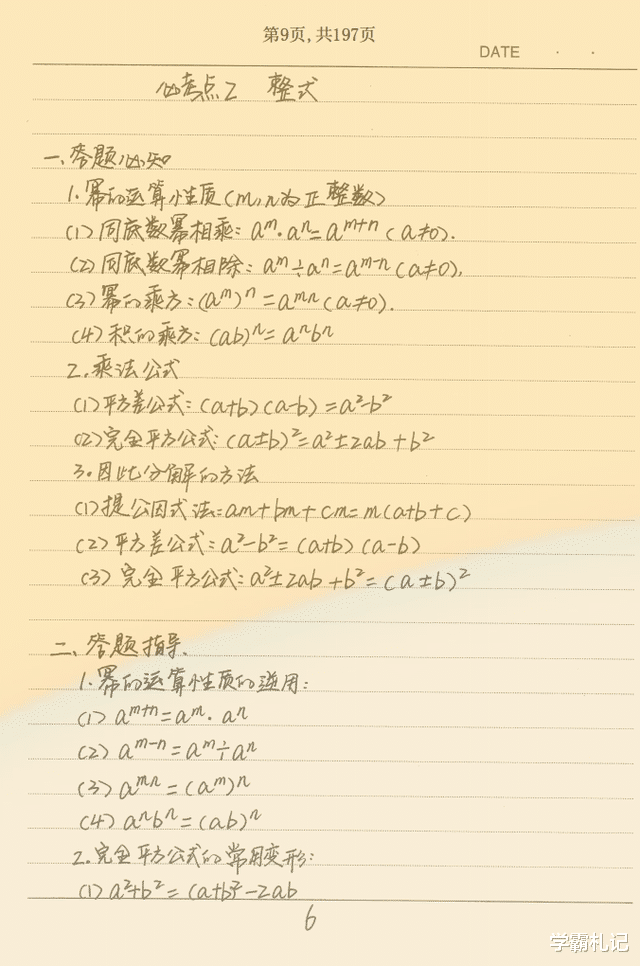 第9页,共197页
DATE · ·
必考点2 整式
一、答题必知
1.幂的运算性质(m,n为正整数)
(1)同底数幂相乘:aᵐ·aⁿ=aᵐ⁺ⁿ(a≠0).
(2)同底数幂相除:aᵐ÷aⁿ=aᵐ⁻ⁿ(a≠0),
(3)幂的乘方:(aᵐ)ⁿ=aᵐⁿ(a≠0).
(4)积的乘方:(ab)ⁿ=aⁿbⁿ
2.乘法公式
(1)平方差公式:(a+b)(a-b)=a²-b²
(2)完全平方公式:(a±b)²=a²±2ab+b²
3.因此分解的方法
(1)提公因式法:am+bm+cm=m(a+b+c)
(2)平方差公式:a²-b²=(a+b)(a-b)
(3)完全平方公式:a²±2ab+b²=(a±b)²
二、答题指导.
1.幂的运算性质的逆用:
(1)aᵐ⁺ⁿ=aᵐ·aⁿ
(2)aᵐ⁻ⁿ=aᵐ÷aⁿ
(3)aᵐⁿ=(aᵐ)ⁿ
(4)aⁿbⁿ=(ab)ⁿ
2.完全平方公式的常用变形:
(1)a²+b²=(a+b)²-2ab
6
学霸札记